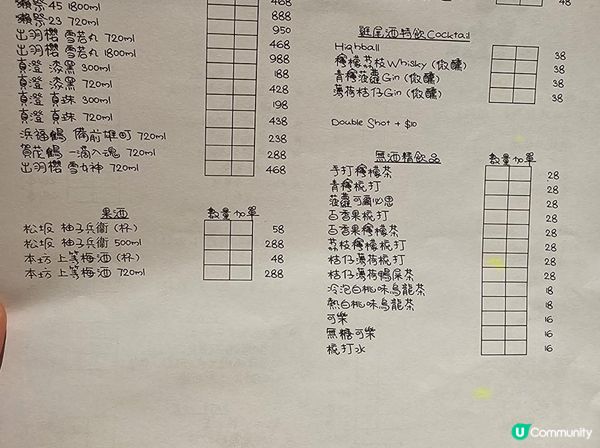 獺祭45 1800ml 468
獺祭23 720ml 888
出羽櫻 雪若丸 720ml 950
出羽櫻 雪若丸 1800ml 468
真澄 漆黑 300ml 988
真澄 漆黑 720ml 188
真澄 真珠 300ml 428
真澄 真珠 720ml 198
浜福鶴 備前雄町 720ml 438
賀茂鶴 一滴入魂 720ml 238
出羽櫻 雪女神 720ml 288
468
果酒 數量 加單
松坂 柚子兵衛 (杯) 58
松坂 柚子兵衛 500ml 288
本坊 上等梅酒 (杯) 48
本坊 上等梅酒 720ml 288
48
雞尾酒精飲Cocktail
Highball 38
檸檬荔枝Whisky (微醺) 38
青檸菠蘿Gin (微醺) 38
薄荷桔仔Gin (微醺)
Double Shot + $10
無酒精飲品 數量 加單
手打檸檬茶 28
青檸梳打 28
菠蘿可爾必思 28
百香果梳打 28
百香果檸檬茶 28
荔枝檸檬梳打 28
桔仔薄荷梳打 28
桔仔薄荷鴨屎茶 28
冷泡白桃味烏龍茶 18
熱白桃味烏龍茶 18
可樂 16
無糖可樂 16
梳打水 16
U Community